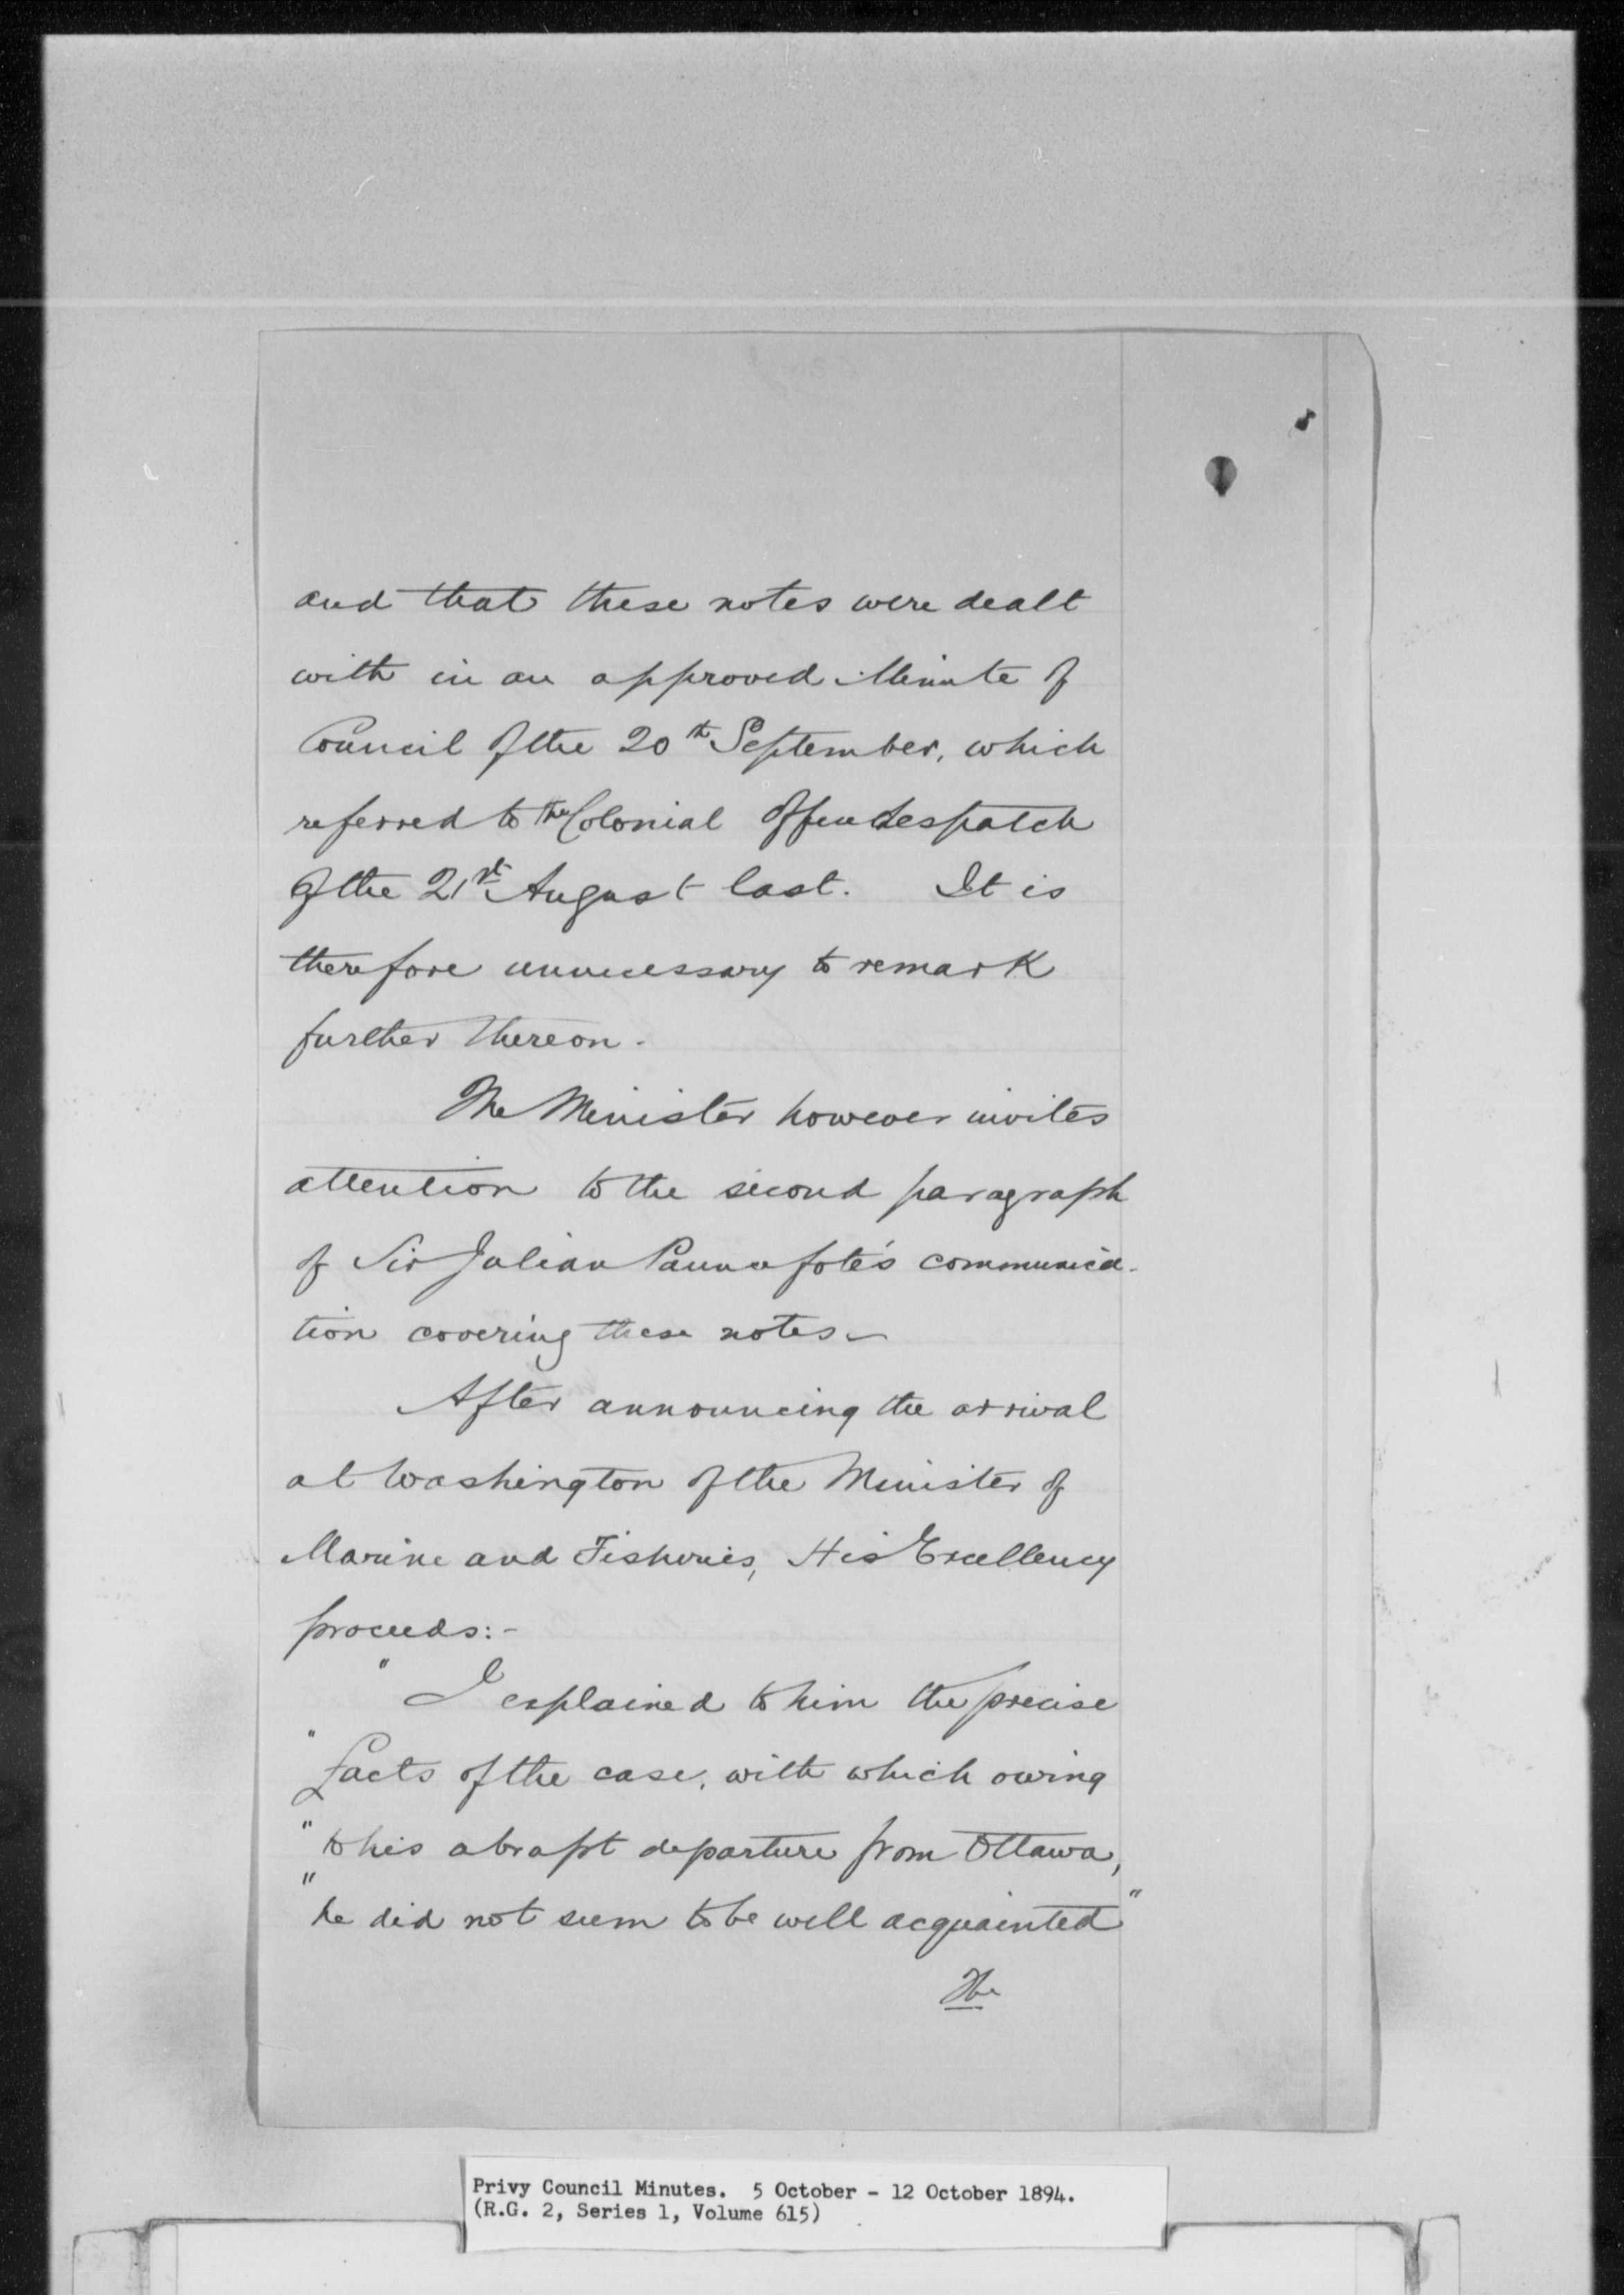 and that these notes were dealt
with in an approved Minute of
Council of the 20th September, which
referred to the Colonial Office despatch
of the 21st August last. It is
therefore unnecessary to remark
further thereon.
The Minister however invites
attention to the second paragraph
of Sir Julian Pauncefote's communica-
tion covering these notes.
After announcing the arrival
at Washington of the Minister of
Marine and Fisheries, His Excellency
proceeds:-
" I explained to him the precise
" facts of the case, with which owing
" to his abrupt departure from Ottawa,
" he did not seem to be well acquainted"
The
Privy Council Minutes. 5 October - 12 October 1894.
(R.G. 2, Series 1, Volume 615)